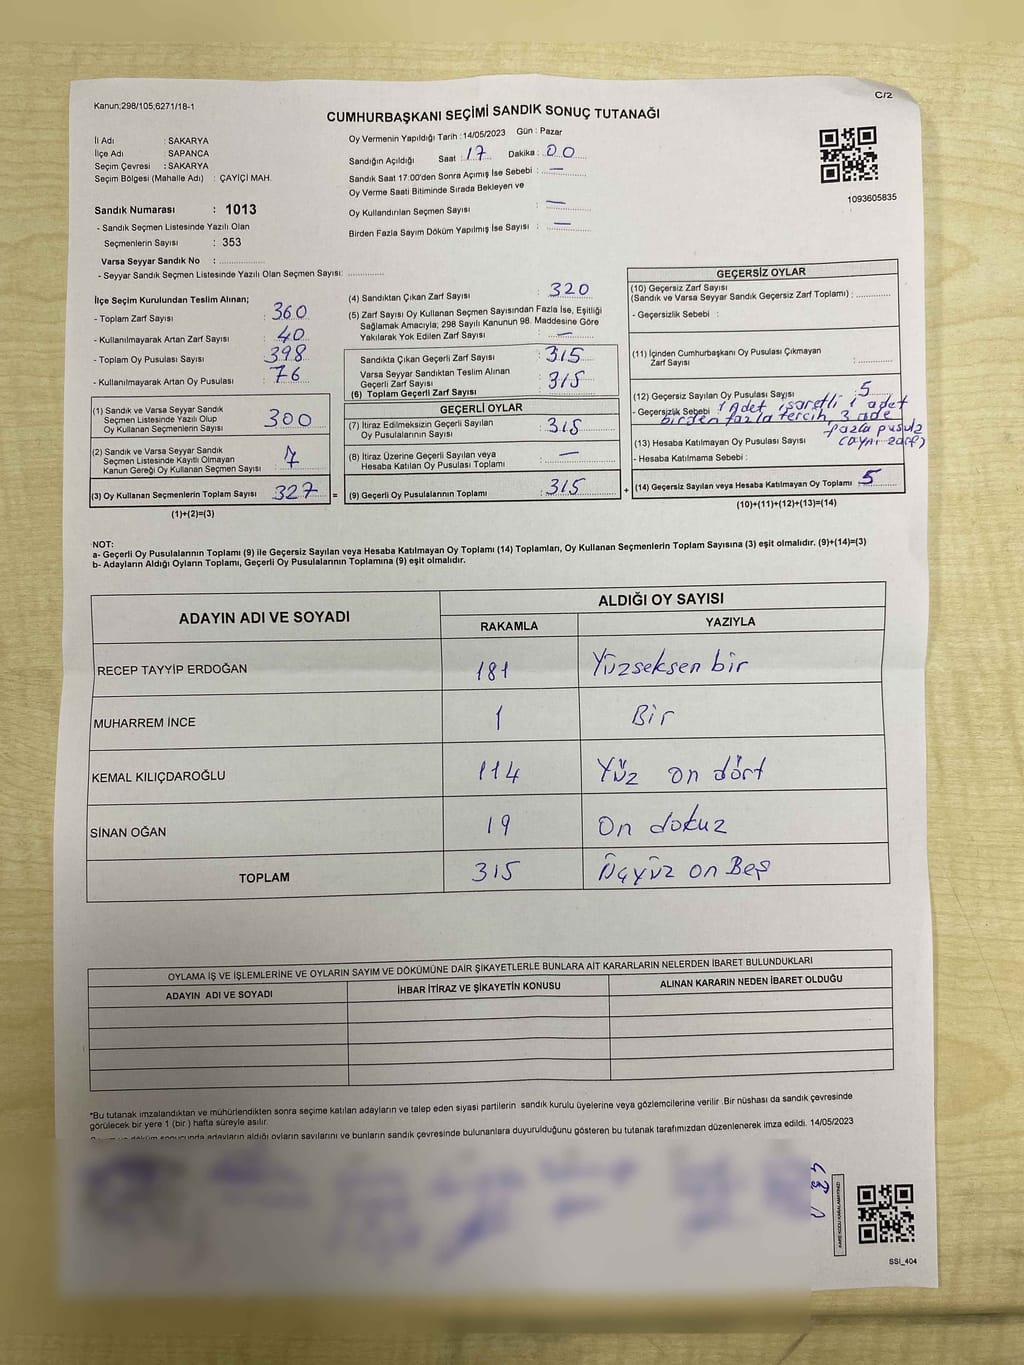 Kanun:298/105,6271/18-1
C/2
CUMHURBAŞKANI SEÇİMİ SANDIK SONUÇ TUTANAĞI
İl Adı : SAKARYA
İlçe Adı : SAPANCA
Seçim Çevresi : SAKARYA
Seçim Bölgesi (Mahalle Adı) : ÇAYİÇİ MAH.
Sandık Numarası : 1013
- Sandık Seçmen Listesinde Yazılı Olan
Seçmenlerin Sayısı : 353
Varsa Seyyar Sandık No : ..............
- Seyyar Sandık Seçmen Listesinde Yazılı Olan Seçmen Sayısı: ............
Oy Vermenin Yapıldığı Tarih : 14/05/2023 Gün : Pazar
Sandığın Açıldığı Saat : 17 Dakika : 00
Sandık Saat 17:00'den Sonra Açımış İse Sebebi : —
Oy Verme Saati Bitiminde Sırada Bekleyen ve
Oy Kullandırılan Seçmen Sayısı : —
Birden Fazla Sayım Döküm Yapılmış İse Sayısı : —
1093605835
İlçe Seçim Kurulundan Teslim Alınan;
- Toplam Zarf Sayısı : 360
- Kullanılmayarak Artan Zarf Sayısı : 40
- Toplam Oy Pusulası Sayısı : 398
- Kullanılmayarak Artan Oy Pusulası : 76
(1) Sandık ve Varsa Seyyar Sandık
Seçmen Listesinde Yazılı Olup
Oy Kullanan Seçmenlerin Sayısı : 300
(2) Sandık ve Varsa Seyyar Sandık
Seçmen Listesinde Kayıtlı Olmayan
Kanun Gereği Oy Kullanan Seçmen Sayısı : 7
(3) Oy Kullanan Seçmenlerin Toplam Sayısı : 327 =
(1)+(2)=(3)
(4) Sandıktan Çıkan Zarf Sayısı : 320
(5) Zarf Sayısı Oy Kullanan Seçmen Sayısından Fazla İse, Eşitliği
Sağlamak Amacıyla; 298 Sayılı Kanunun 98. Maddesine Göre
Yakılarak Yok Edilen Zarf Sayısı : —
Sandıkta Çıkan Geçerli Zarf Sayısı : 315
Varsa Seyyar Sandıktan Teslim Alınan
Geçerli Zarf Sayısı : 315
(6) Toplam Geçerli Zarf Sayısı
GEÇERLİ OYLAR
(7) İtiraz Edilmeksizin Geçerli Sayılan
Oy Pusulalarının Sayısı : 315
(8) İtiraz Üzerine Geçerli Sayılan veya
Hesaba Katılan Oy Pusulası Toplamı : —
(9) Geçerli Oy Pusulalarının Toplamı : 315 +
GEÇERSİZ OYLAR
(10) Geçersiz Zarf Sayısı
(Sandık ve Varsa Seyyar Sandık Geçersiz Zarf Toplamı) : ............
- Geçersizlik Sebebi :
(11) İçinden Cumhurbaşkanı Oy Pusulası Çıkmayan
Zarf Sayısı : ............
(12) Geçersiz Sayılan Oy Pusulası Sayısı : 5
- Geçersizlik Sebebi : 1 Adet işaretli 1 adet
birden fazla tercih 3 ade
fazla pusula
(aynı zarf)
(13) Hesaba Katılmayan Oy Pusulası Sayısı
- Hesaba Katılmama Sebebi :
(14) Geçersiz Sayılan veya Hesaba Katılmayan Oy Toplamı : 5
(10)+(11)+(12)+(13)=(14)
NOT:
a- Geçerli Oy Pusulalarının Toplamı (9) ile Geçersiz Sayılan veya Hesaba Katılmayan Oy Toplamı (14) Toplamları, Oy Kullanan Seçmenlerin Toplam Sayısına (3) eşit olmalıdır. (9)+(14)=(3)
b- Adayların Aldığı Oyların Toplamı, Geçerli Oy Pusulalarının Toplamına (9) eşit olmalıdır.
ADAYIN ADI VE SOYADI ALDIĞI OY SAYISI
RAKAMLA YAZIYLA
RECEP TAYYİP ERDOĞAN 181 Yüzseksen bir
MUHARREM İNCE 1 Bir
KEMAL KILIÇDAROĞLU 114 Yüz on dört
SİNAN OĞAN 19 On dokuz
TOPLAM 315 Üçyüz on Beş
OYLAMA İŞ VE İŞLEMLERİNE VE OYLARIN SAYIM VE DÖKÜMÜNE DAİR ŞİKAYETLERLE BUNLARA AİT KARARLARIN NELERDEN İBARET BULUNDUKLARI
ADAYIN ADI VE SOYADI İHBAR İTİRAZ VE ŞİKAYETİN KONUSU ALINAN KARARIN NEDEN İBARET OLDUĞU
*Bu tutanak imzalandıktan ve mühürlendikten sonra seçime katılan adayların ve talep eden siyasi partilerin sandık kurulu üyelerine veya gözlemcilerine verilir .Bir nüshası da sandık çevresinde
görülecek bir yere 1 (bir ) hafta süreyle asılır.
Sayım ve döküm sonucunda adayların aldığı oyların sayılarını ve bunların sandık çevresinde bulunanlara duyurulduğunu gösteren bu tutanak tarafımızdan düzenlenerek imza edildi. 14/05/2023
SSI_404